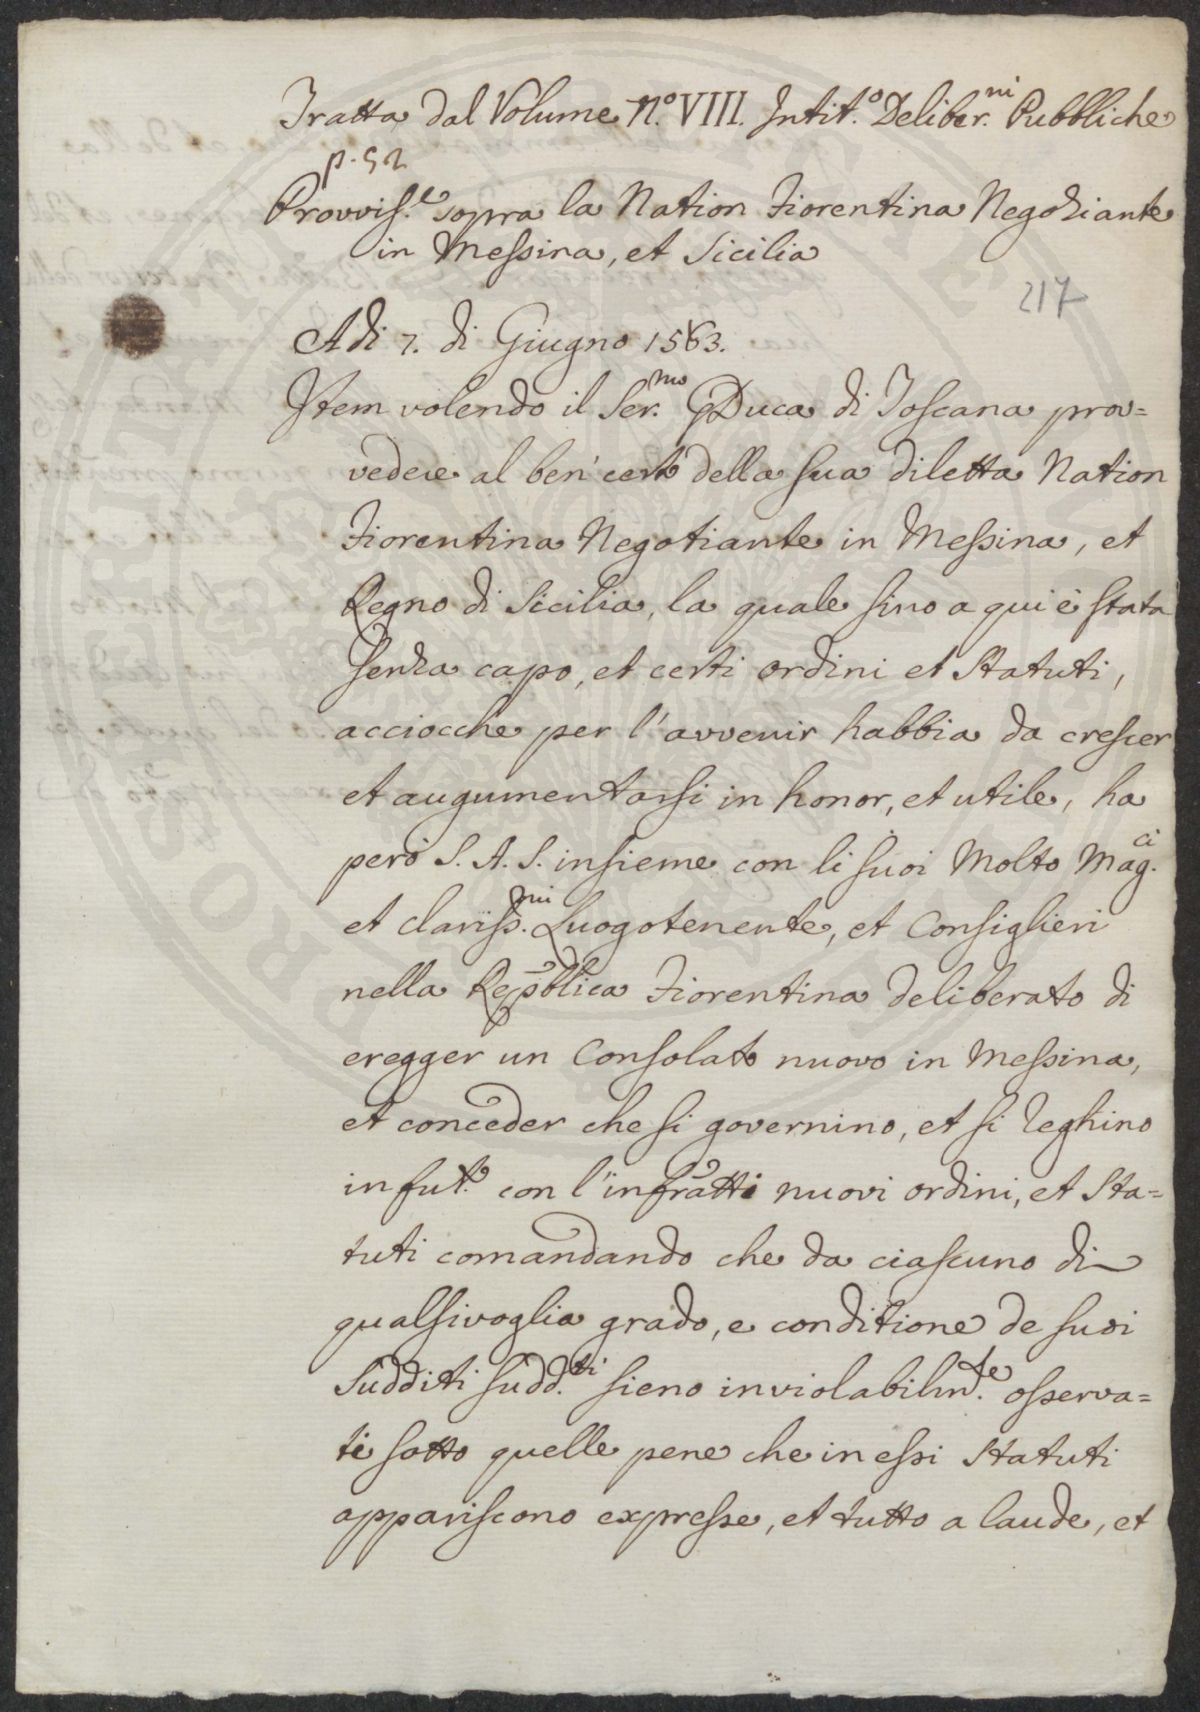 Tratta dal Volume N.º VIII. Intit.º Deliber.ni Pubbliche
p. 52
Provvis.e sopra la Nation Fiorentina Negoziante
in Messina, et Sicilia
217
Adi 7. di Giugno 1563.
Item volendo il Ser.mo GDuca di Toscana prov=
vedere al ben' della sua diletta Nation
Fiorentina Negotiante in Messina, et
Regno di Sicilia, la quale sino a qui è stata
senza capo, et certi ordini et Statuti,
acciocche per l'avvenir habbia da crescer
et augumentarsi in honor, et utile, ha
però S. A. S. insieme con li suoi Molto Mag.ci
et clariss.mi Luogotenente, et Consiglieri
nella Repõblica Fiorentina deliberato di
eregger un Consolato nuovo in Messina,
et conceder che si governino, et si reghino
in fut.º con l'infratti nuovi ordini, et Sta=
tuti comandando che da ciascuno di
qualsivoglia grado, e conditione de suoi
Sudditi sudd.ti sieno inviolabilm.te osserva=
ti sotto quelle pene che in essi Statuti
appariscono expresse, et tutto a laude, et